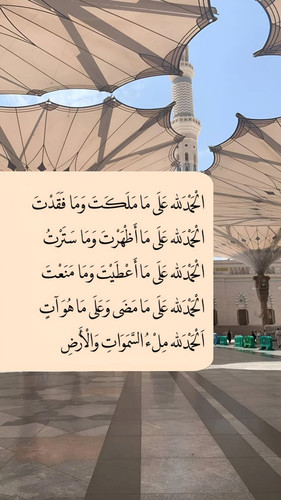 الْحَمْدُلله عَلَى مَا مَلَكَتَ وَمَا فَقَدْتَ
الْحَمْدُلله عَلَى مَا أَظْهَرْتَ وَمَا سَتَرْتُ
الْحَمْدُلله عَلَى مَا أَعْطَيْتَ وَمَا مَنَعْتَ
الْحَمْدُلله عَلَى مَا مَضَى وَعَلَى مَا هُوَ آتٍ
اَلْحَمْدُلله مِلْءُ السَّمَوَاتِ وَالْأَرضِ